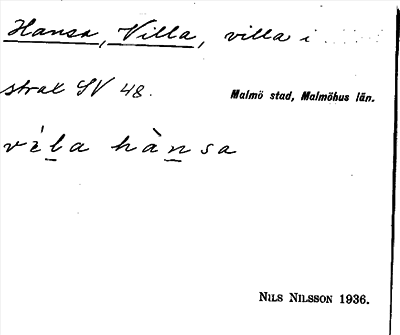 Hansa, Villa, villa i
strax SV 48.
Malmö stad, Malmöhus län.
véla hànsa
NILS NILSSON 1936.